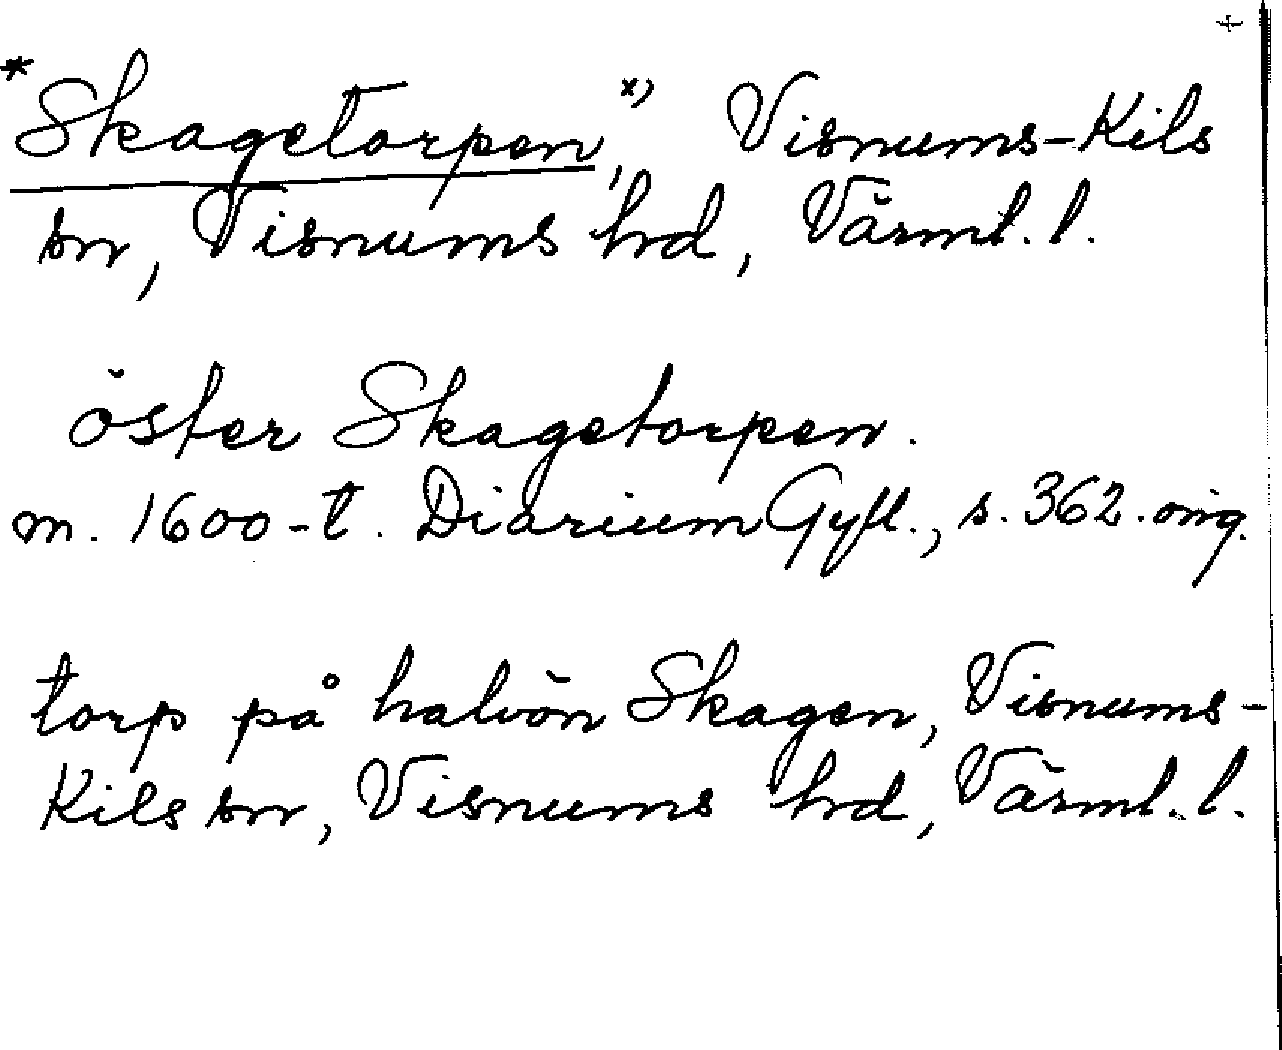 +
*Skagetorpen,x) Visnums-Kils
sn, Visnums hd, Värml. l.
öster Skagetorpen.
m. 1600-t. Diarium Gyll., s. 362. orig.
torp på halvön Skagen, Visnums-
Kils sn, Visnums hd, Värml. l.